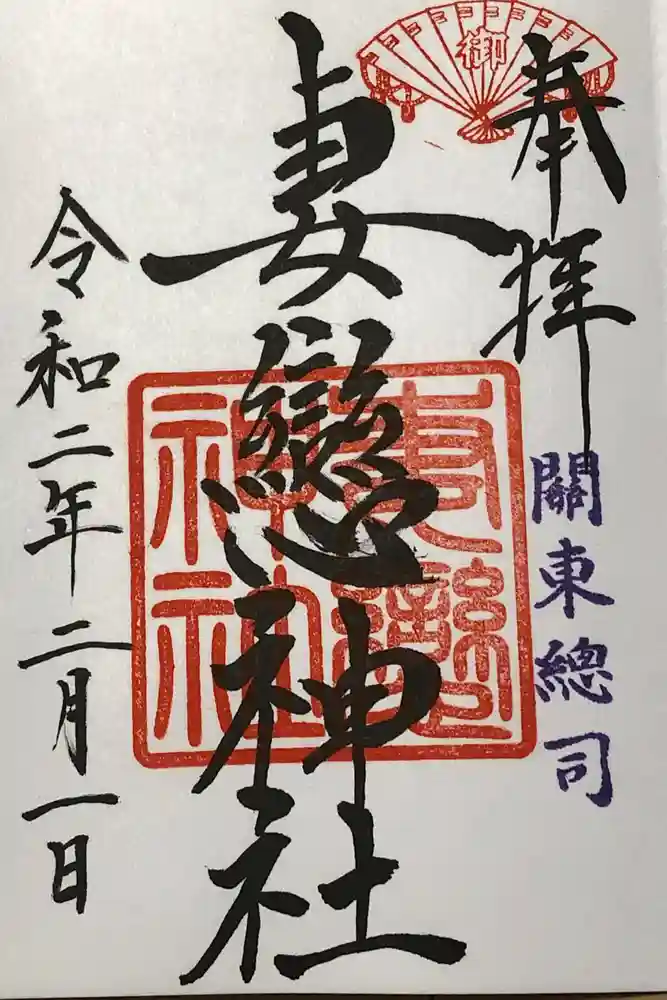 奉拝
關東總司
妻戀神社
妻戀神社
令和二年二月一日
御